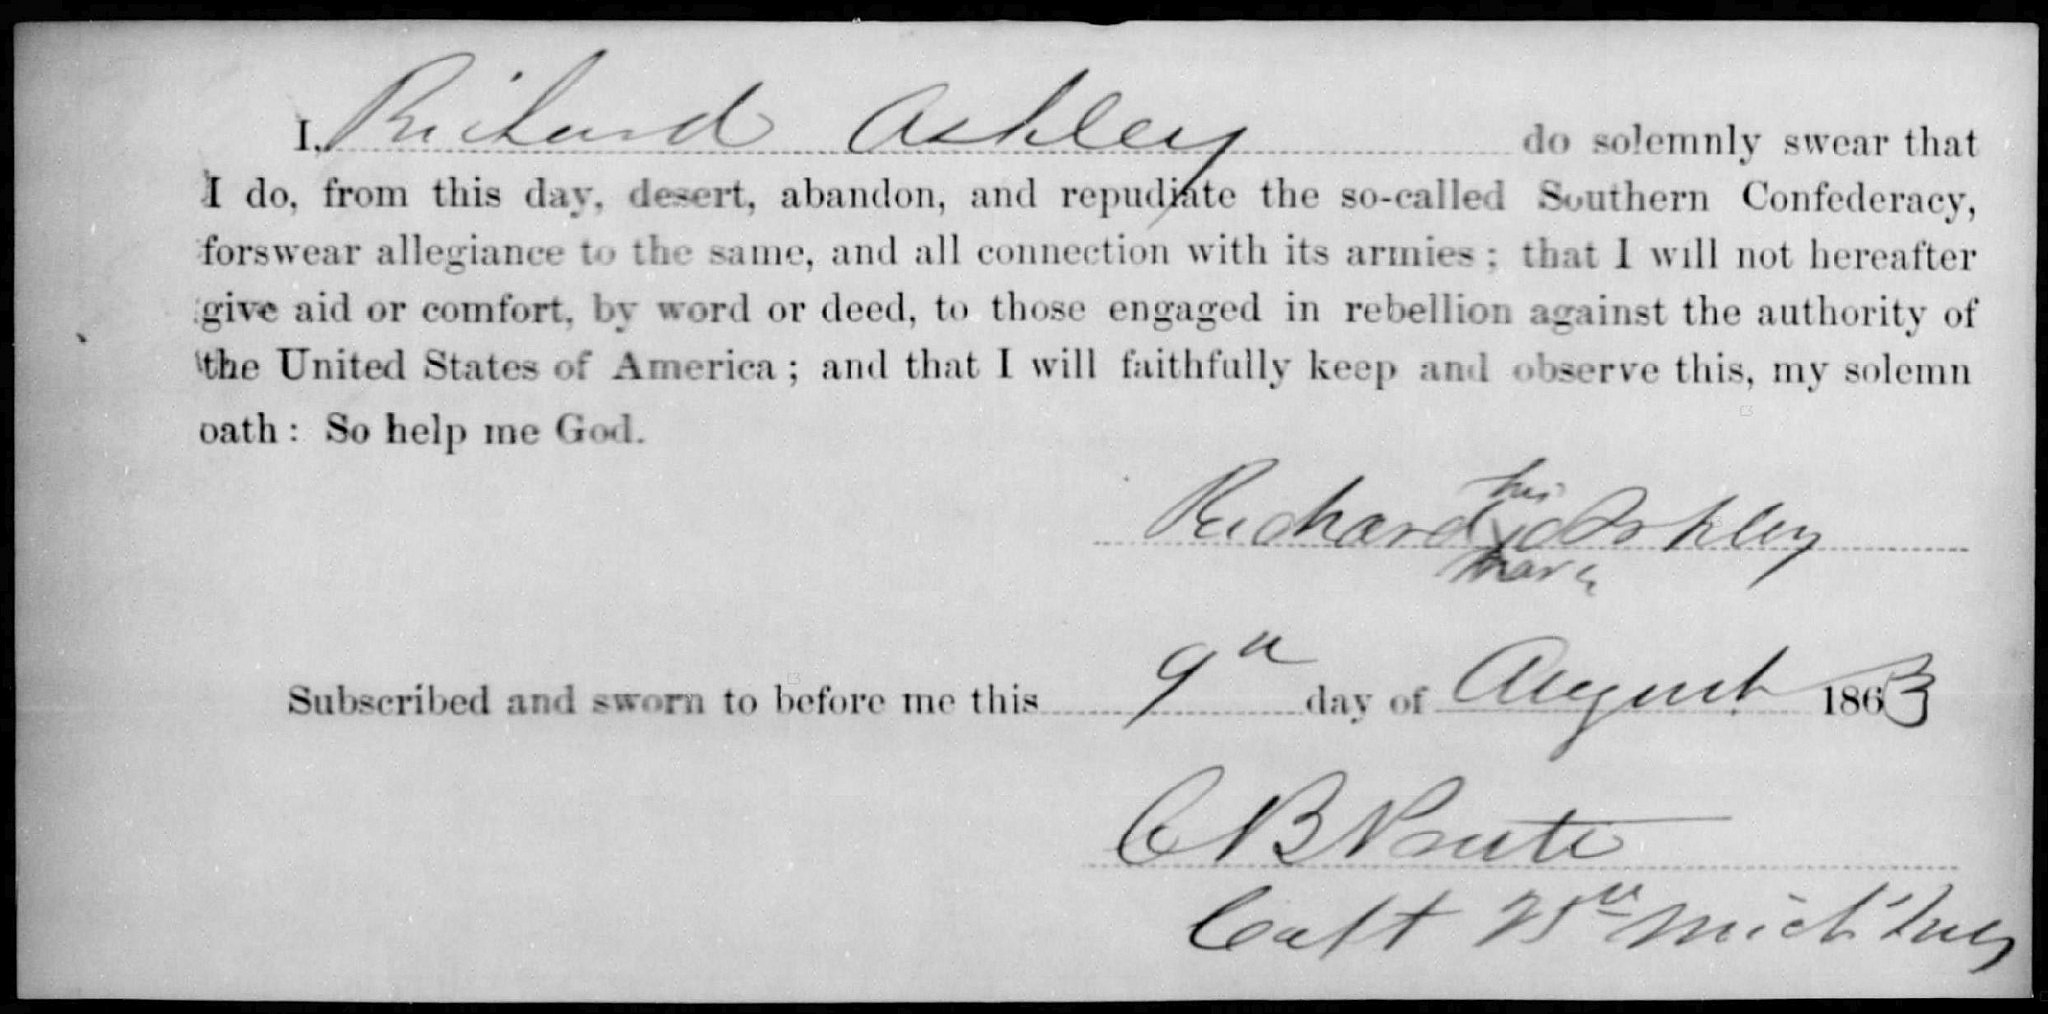 I, Richard Ashley do solemnly swear that
I do, from this day, desert, abandon, and repudiate the so-called Southern Confederacy,
forswear allegiance to the same, and all connection with its armies; that I will not hereafter
give aid or comfort, by word or deed, to those engaged in rebellion against the authority of
the United States of America; and that I will faithfully keep and observe this, my solemn
oath: So help me God.
his
Richard x Ashley
mark
Subscribed and sworn to before me this 9th day of August 1863
C B
Capt 25th Mich Infy